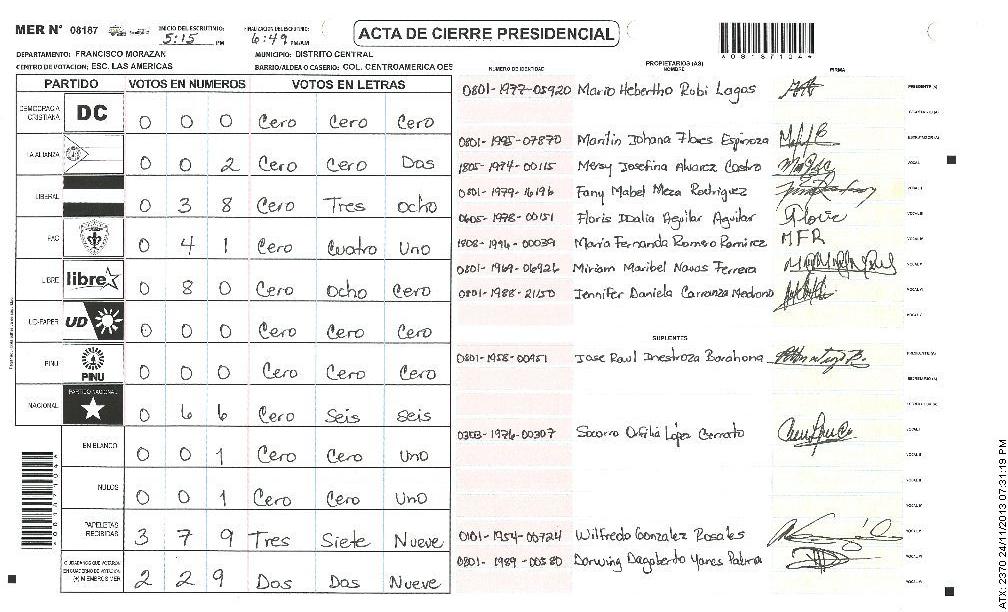 MER Nº 08187 INICIO DEL ESCRUTINIO: 5:15 PM FINALIZACION DEL ESCRUTINIO: 6:49 PM/AM ACTA DE CIERRE PRESIDENCIAL *08187104*
DEPARTAMENTO: FRANCISCO MORAZAN MUNICIPIO: DISTRITO CENTRAL
CENTRO DE VOTACION: ESC. LAS AMERICAS BARRIO/ALDEA O CASERIO: COL. CENTROAMERICA OES
PARTIDO VOTOS EN NUMEROS VOTOS EN LETRAS
DEMOCRACIA CRISTIANA DC 0 0 0 Cero Cero Cero
LA ALIANZA 0 0 2 Cero Cero Dos
LIBERAL 0 3 8 Cero Tres ocho
PAC 0 4 1 Cero Cuatro Uno
LIBRE libre 0 8 0 Cero Ocho Cero
UD-FAPER UD 0 0 0 Cero Cero Cero
PINU PINU 0 0 0 Cero Cero Cero
NACIONAL PARTIDO NACIONAL 0 6 6 Cero Seis seis
EN BLANCO 0 0 1 Cero Cero Uno
NULOS 0 0 1 Cero Cero Uno
PAPELETAS RECIBIDAS 3 7 9 Tres Siete Nueve
CIUDADANOS QUE VOTARON EN CUADERNO DE VOTACION (+) MIEMBROS MER 2 2 9 Dos Dos Nueve
NUMERO DE IDENTIDAD PROPIETARIOS (AS) NOMBRE FIRMA
0801-1977-05920 Mario Hebertho Rubi Lagos PRESIDENTE (A)
SECRETARIO (A)
0801-1995-07870 Marilin Johana Flores Espinoza ESCRUTADOR (A)
1805-1974-00115 Mersy Josefina Alvarez Castro VOCAL I
0801-1979-16196 Fany Mabel Meza Rodriguez VOCAL II
0605-1978-00151 Floris Idalia Aguilar Aguilar VOCAL III
1808-1994-00039 Maria Fernanda Romero Ramirez MFR VOCAL IV
0801-1969-06926 Miriam Maribel Navas Ferrera VOCAL V
0801-1988-21150 Jennifer Daniela Carranza Medrano VOCAL VI
SUPLENTES
0801-1958-00951 Jose Raul Inestroza Barahona PRESIDENTE (A)
SECRETARIO (A)
0303-1976-00307 Socorro Ofilia López Serrato VOCAL I
0101-1954-00724 Wilfredo Gonzalez Rosales
0801-1989-00580 Darwing Dagoberto Yanes Palma
ATX: 2370 24/11/2013 07:31:19 PM